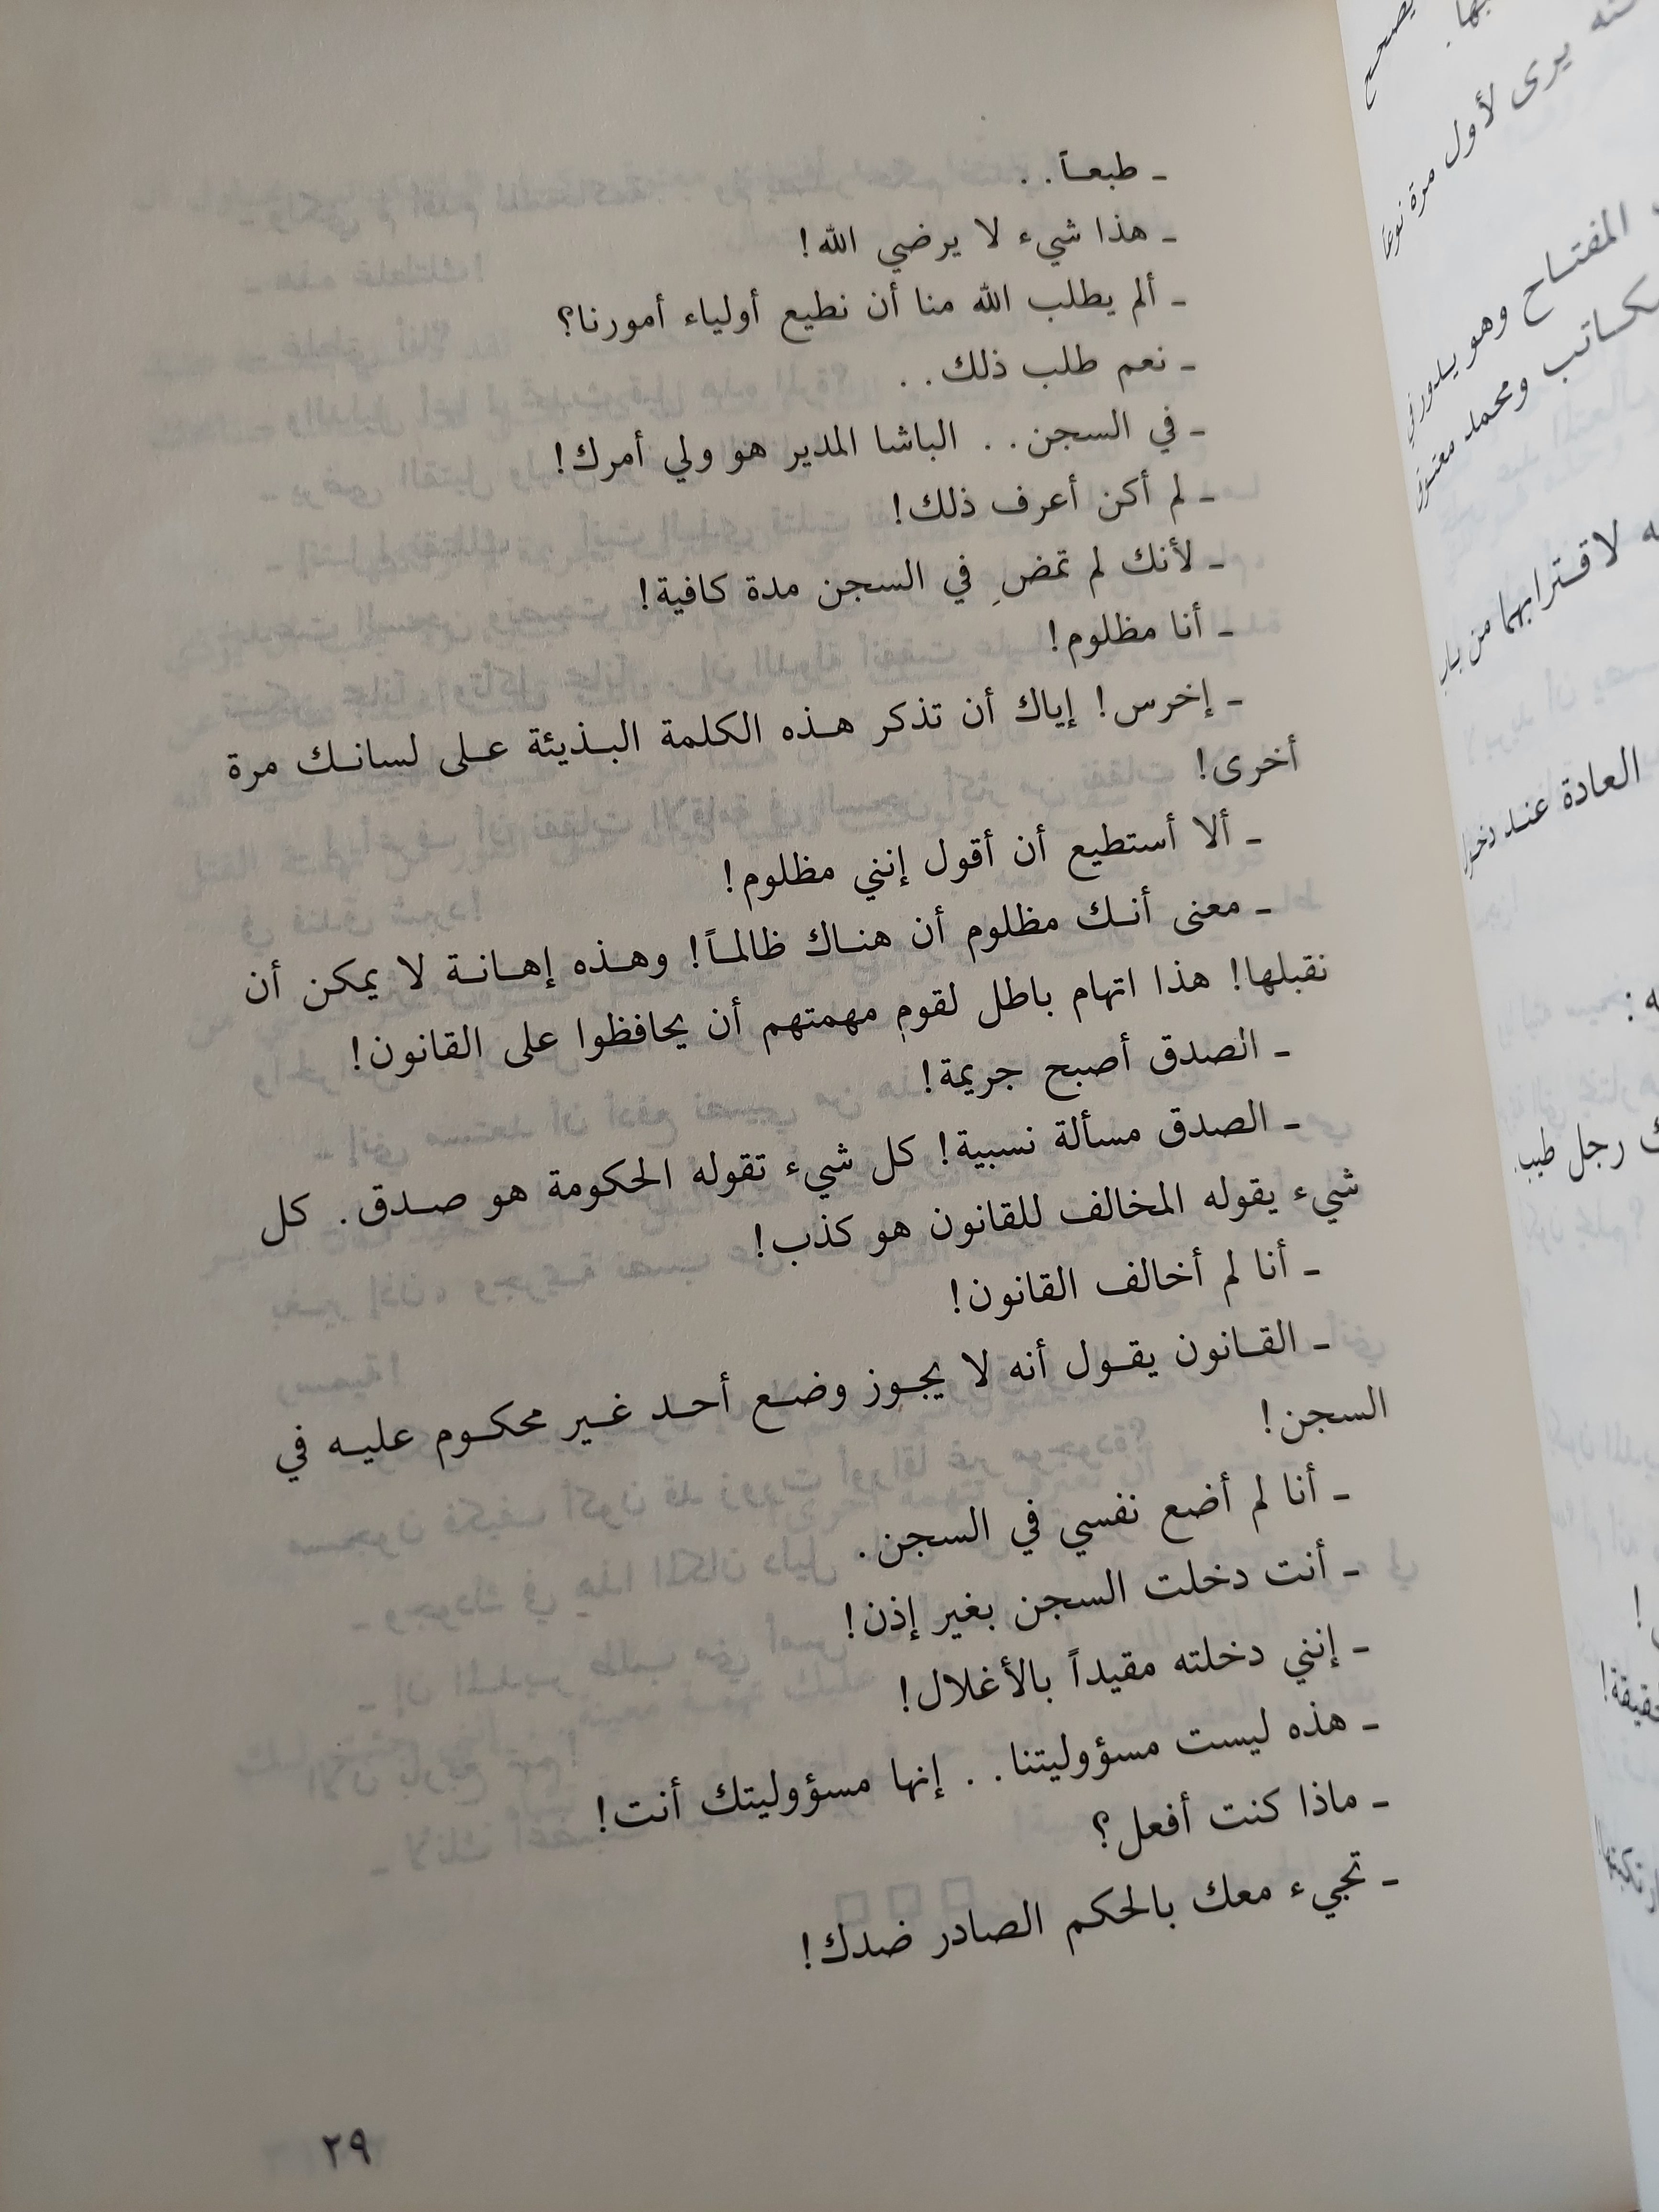 ـ طبعـاً. .
ـ هذا شيء لا يرضي الله!
ـ ألم يطلب الله منا أن نطيع أولياء أمورنا؟
ـ نعم طلب ذلك. .
ـ في السجن. . الباشا المدير هو ولي أمرك!
ـ لم أكن أعرف ذلك!
ـ لأنك لم تمضِ في السجن مدة كافية!
ـ أنا مظلوم!
ـ إخرس! إياك أن تذكر هـذه الكلمة البـذيئة عـلى لسانـك مرة
أخرى!
ـ ألا أستطيع أن أقول إنني مظلوم!
ـ معنى أنـك مظلوم أن هنـاك ظالمـاً! وهـذه إهـانـة لا يمكن أن
نقبلها! هذا اتهام باطل لقومٍ مهمتهم أن يحافظوا على القانون!
ـ الصدق أصبح جريمة!
ـ الصدق مسألة نسبية! كل شيء تقوله الحكومة هو صـدق. كل
شيء يقوله المخالف للقانون هو كذب!
ـ أنا لم أخالف القانون!
ـ القـانون يقـول أنه لا يجـوز وضـع أحـد غـير محكـوم عليـه في
السجن!
ـ أنا لم أضع نفسي في السجن.
ـ أنت دخلت السجن بغير إذن!
ـ إنني دخلته مقيداً بالأغلال!
ـ هذه ليست مسؤوليتنا. . إنها مسؤوليتك أنت!
ـ ماذا كنت أفعل؟
ـ تجيء معك بالحكم الصادر ضدك!
٢٩
يرى لأول مرة نوعاً
المفتـاح وهو يـدور في
ومحمد
لاقـترابهما من
العادة عنـد دخول
رجل طيب.